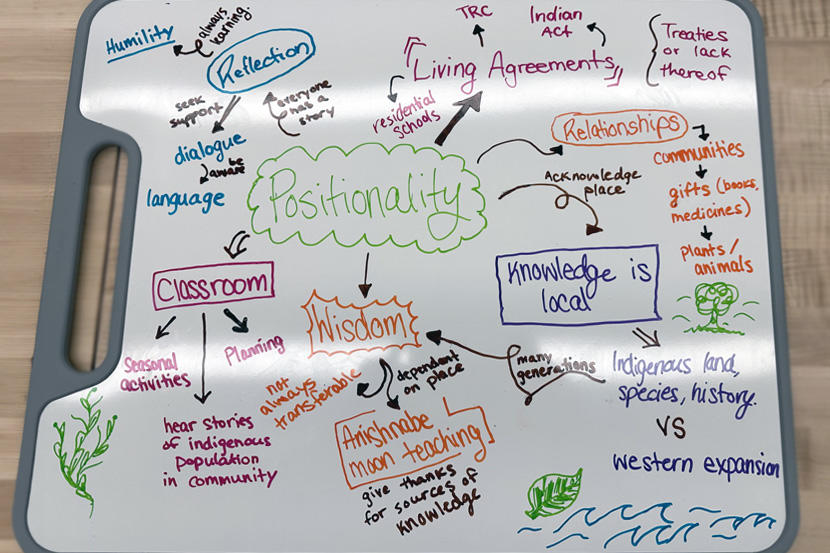 Humility
always
learning.
Reflection
seek
support
everyone
has a
story
dialogue
be
aware
language
TRC
Indian
Act
"Living Agreements"
residential
schools
Treaties
or lack
thereof
Positionality
Relationships
communities
gifts (books,
medicines)
plants/
animals
Acknowledge
place
Knowledge is
local
Classroom
Seasonal
activities
Planning
hear stories
of indigenous
population
in community
Wisdom
not
always
transferable
dependent
on place
many
generations
Anishnabe
moon teaching
give thanks
for sources of
knowledge
Indigenous land,
species, history.
VS
western expansion